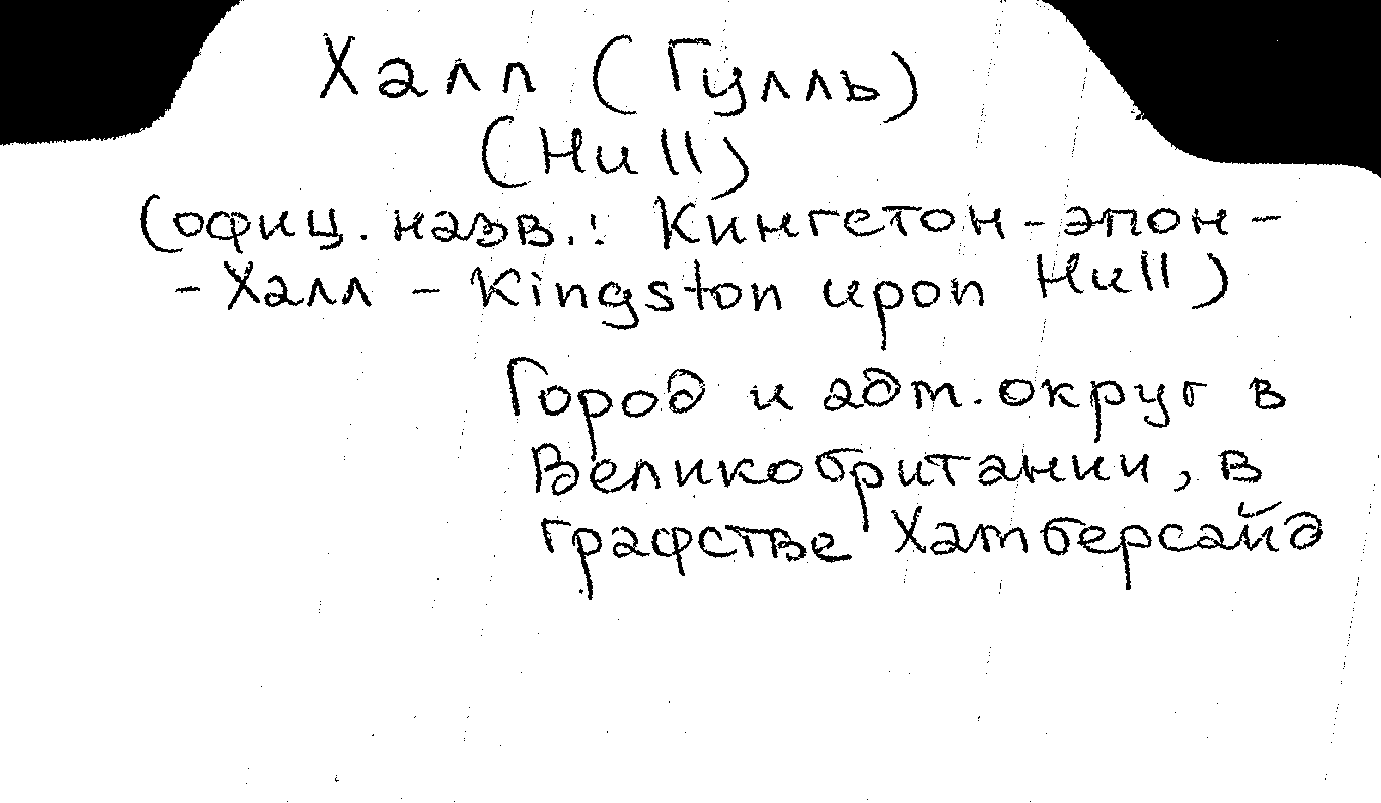 Халл (Гулль)
(Hull)
(офиц. назв.: Кингстон-эпон-
-Халл - Kingston upon Hull)
Город и адм. округ в
Великобритании, в
графстве Хамберсайд